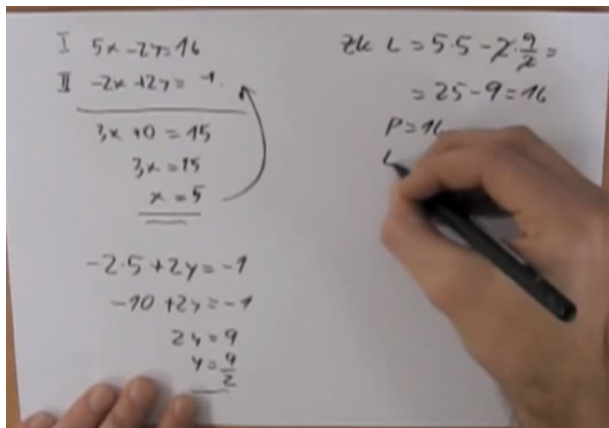 I 5x - 2y = 16
II -2x + 2y = -1
3x + 0 = 15
3x = 15
x = 5
-2·5 + 2y = -1
-10 + 2y = -1
2y = 9
y = 9/2
Zk L = 5·5 - 2·9/2 =
= 25 - 9 = 16
P = 16
L